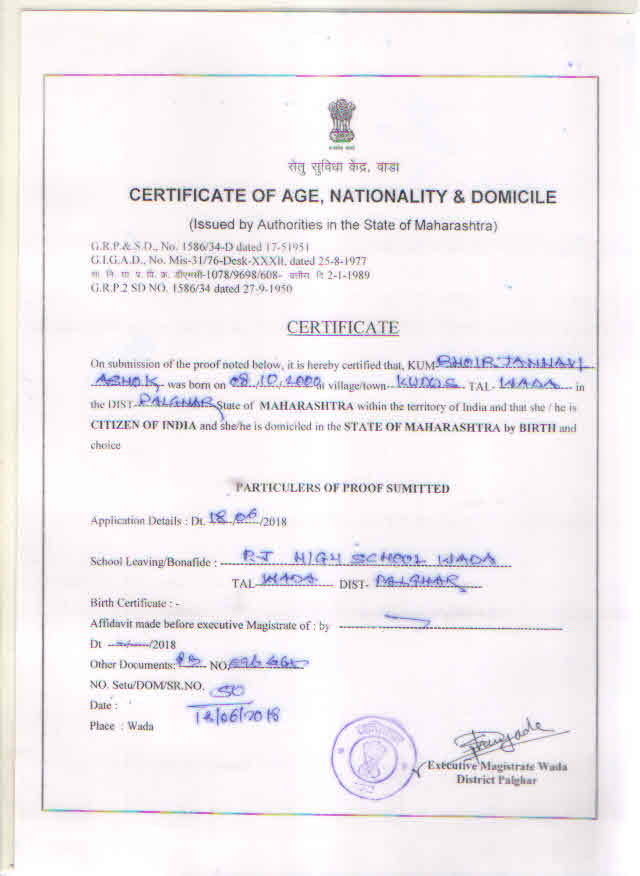 सेतु सुविधा केंद्र, वाडा
CERTIFICATE OF AGE, NATIONALITY & DOMICILE
(Issued by Authorities in the State of Maharashtra)
G.R.P.& S.D., No. 1586/34-D dated 17-51951
G.I.G.A.D., No. Mis-31/76-Desk-XXXII, dated 25-8-1977
सा. नि. सा. प. वि. क्र. डीएमसी-1078/9698/608- दि 2-1-1989
G.R.P.2 SD NO. 1586/34 dated 27-9-1950
CERTIFICATE
On submission of the proof noted below, it is hereby certified that, KUM- BHOIR JANNAVI
ASHOK was born on 08.10.2000 village/town KUDUS TAL- WADA in
the DIST- PALGHAR State of MAHARASHTRA within the territory of India and that she / he is
CITIZEN OF INDIA and she/he is domiciled in the STATE OF MAHARASHTRA by BIRTH and
choice
PARTICULERS OF PROOF SUMITTED
Application Details : Dt. 18/06/2018
School Leaving/Bonafide : P.J HIGH SCHOOL WADA
TAL- WADA DIST- PALGHAR
Birth Certificate : -
Affidavit made before executive Magistrate of : by
Dt /2018
Other Documents: NO.
NO. Setu/DOM/SR.NO. 50
Date : 18/06/2018
Place : Wada
Executive Magistrate Wada
District Palghar